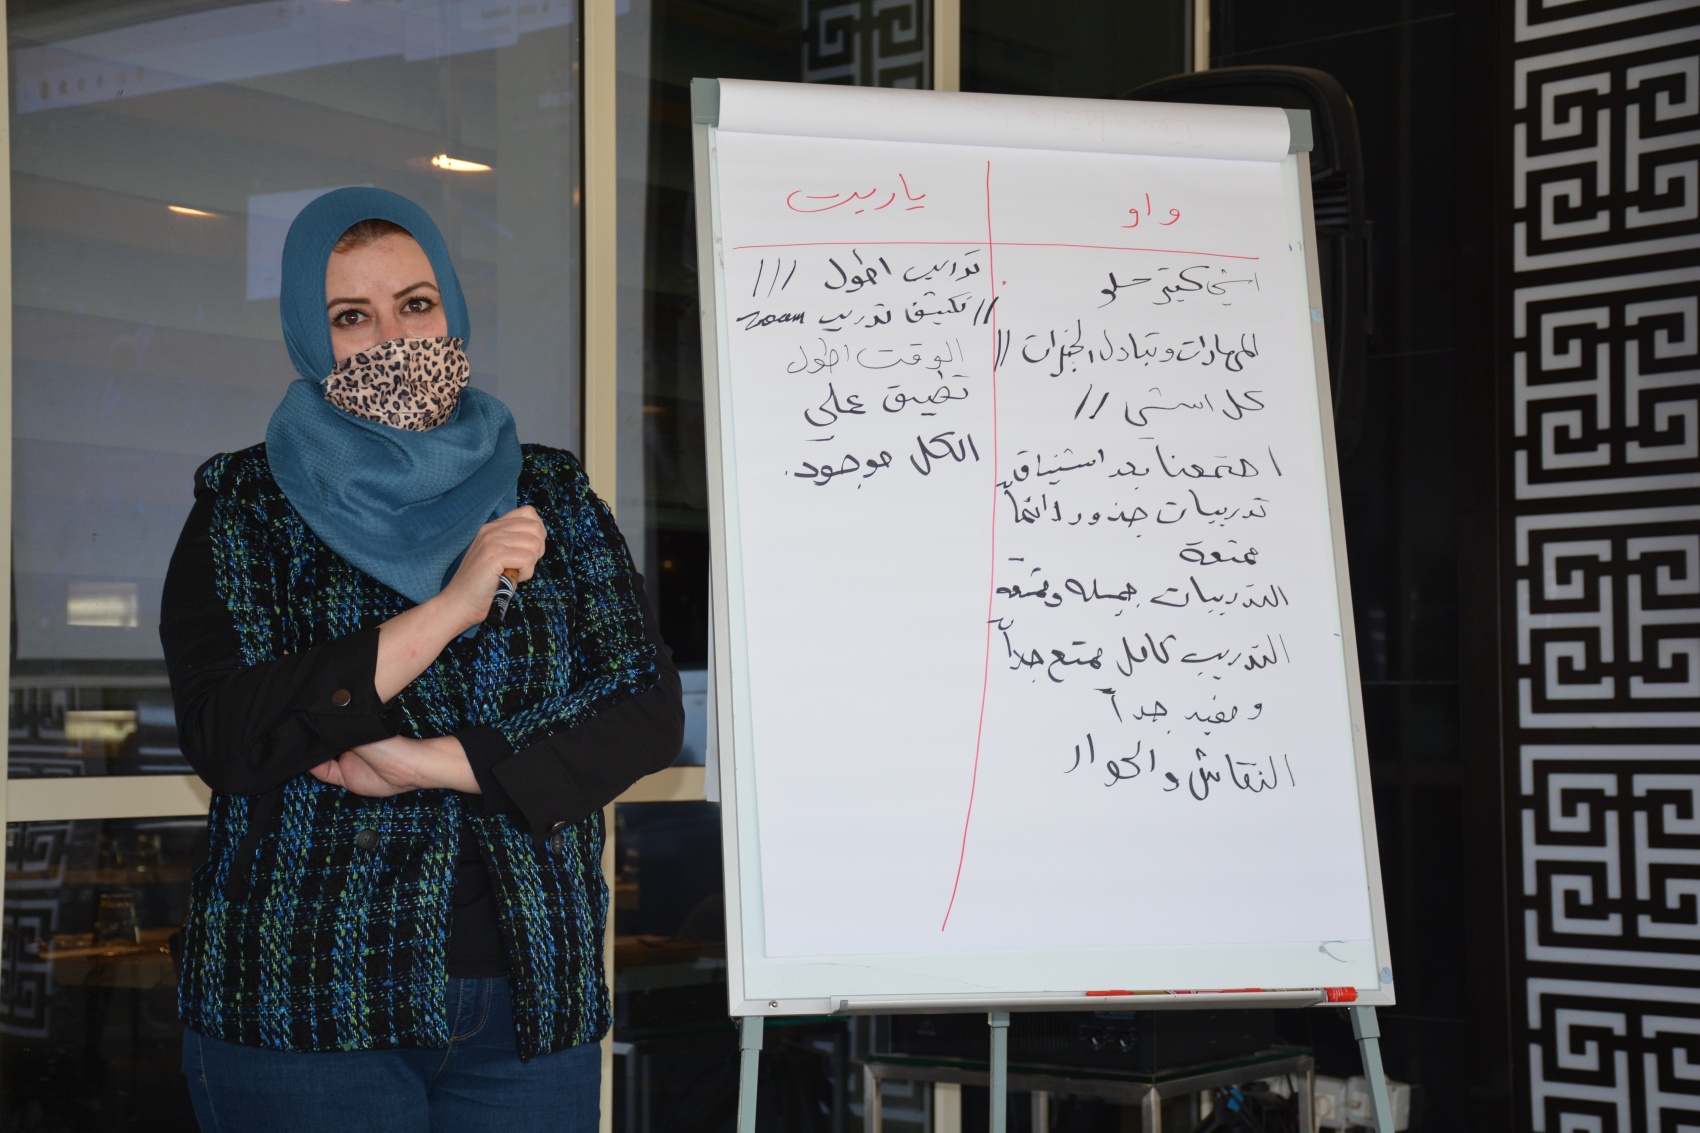 واو
اشي كتير حلو
المهارات وتبادل الخبرات //
كل اشي //
اجتمعنا بعد اشتياق
تدريبات جذور دائماً
ممتعة
التدريبات جميله وممتعه
التدريب كامل ممتع جداً
ومفيد جداً
النقاش والحوار
ياريت
تدريب اطول ///
// تكثيف تدريب zoom
الوقت اطول
تطبيق عملي
الكل موجود.